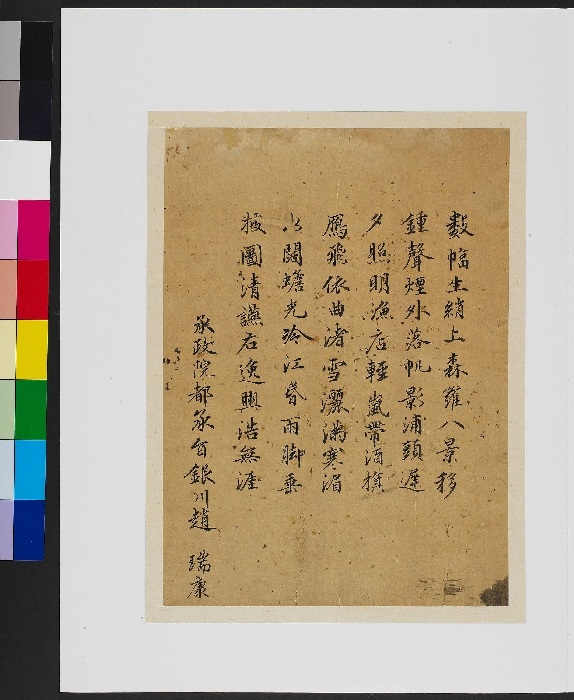 數幅生綃上森羅八景移
鍾聲煙外落帆影浦頭遲
夕照明漁店輕嵐帶酒旗
鴈飛依曲渚雪灑滿寒湄
水闊蟾光冷江昏雨脚垂
披圖清讌右逸興浩無涯
承政院都承旨銀川趙瑞康